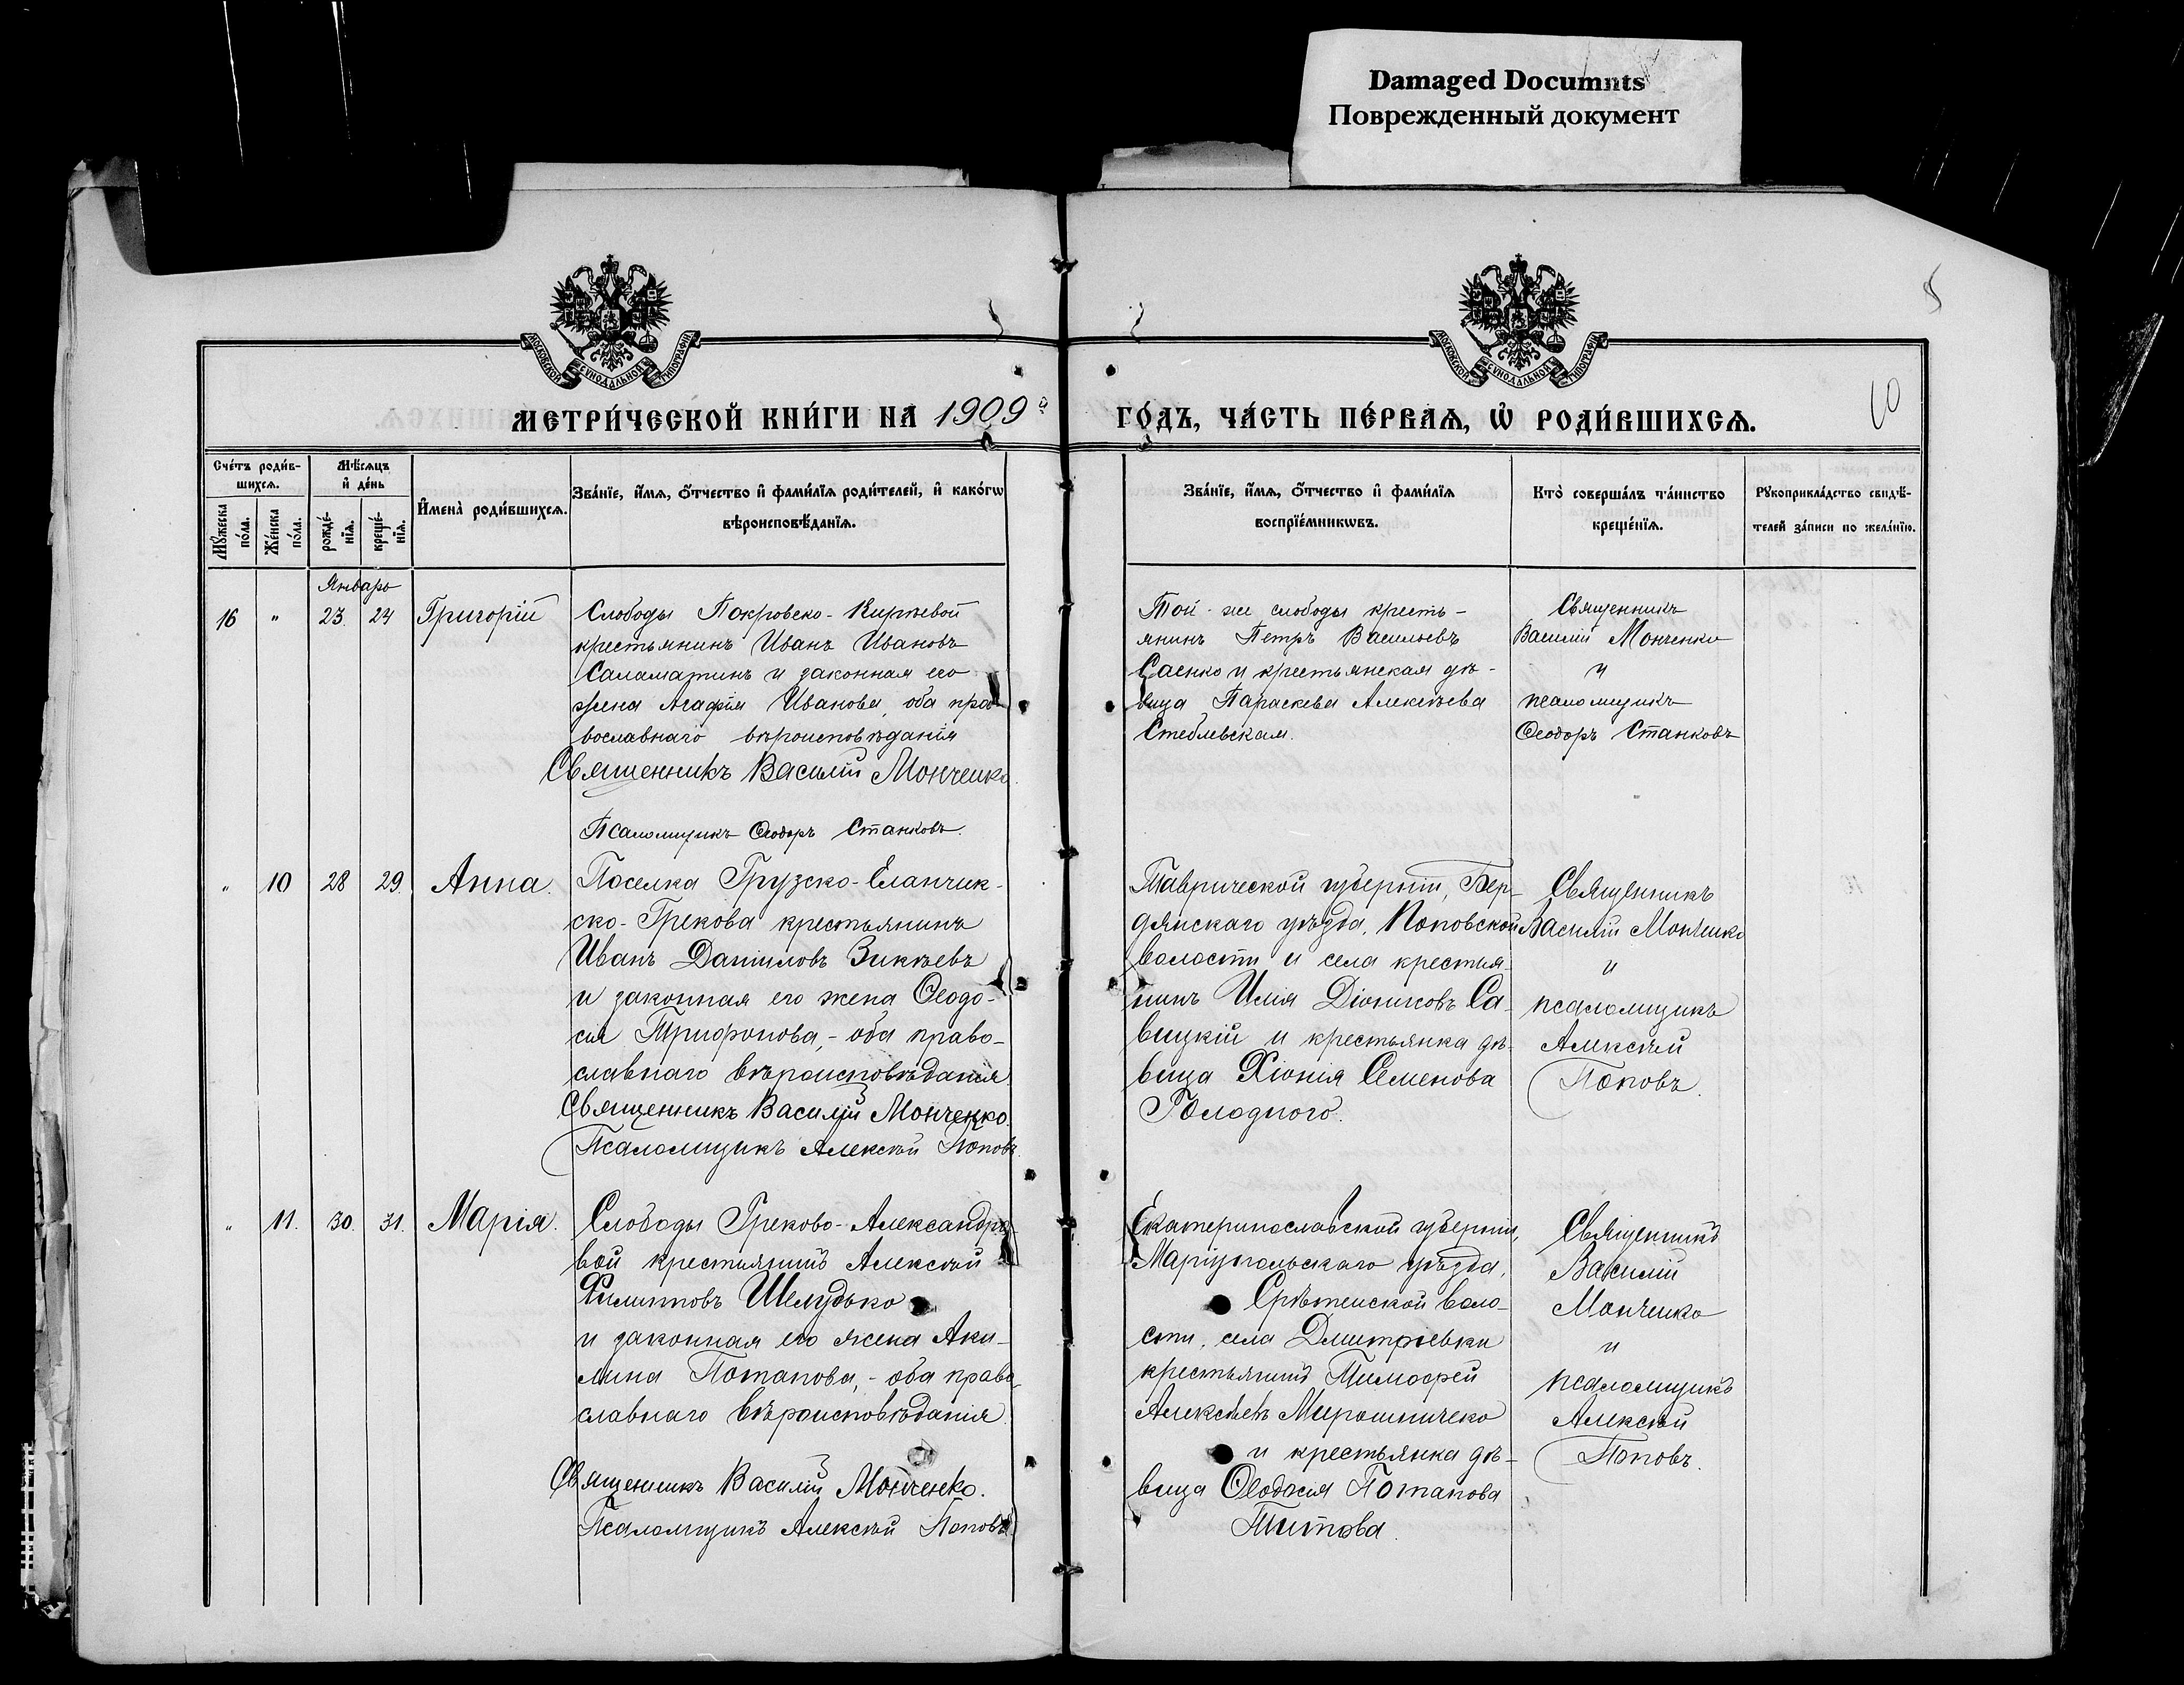 Damaged Documnts
Поврежденный документ
8
60
МОСКОВСКОЙ СѴНОДАЛЬНОЙ ТИПОГРАФІИ
МОСКОВСКОЙ СѴНОДАЛЬНОЙ ТИПОГРАФІИ
МЕТРИ́ЧЕСКОЙ КНИ́ГИ НА 1909й ГО́ДЪ, ЧА́СТЬ ПЕ́РВАѦ, Ѡ҆ РОДИ́ВШИХСѦ.
Сче́тъ роди́в-
шихсѧ.
Мꙋ́жеска
по́ла.
Же́нска
по́ла.
Мѣ́сѧцъ
и҆ де́нь
рожде́-
нїѧ.
креще́-
нїѧ.
И҆мена̀ роди́вшихсѧ.
Зва́нїе, и҆́мѧ, ѻ҆́тчество и҆ фами́лїѧ роди́телей, и҆ како́гѡ
вѣроисповѣ́данїѧ.
Зва́нїе, и҆́мѧ, ѻ҆́тчество и҆ фами́лїѧ
воспрїе́мникѡвъ.
Кто̀ соверша́лъ та́инство
креще́нїѧ.
Рꙋкоприкла́дство свидѣ́-
телей за́писи по жела́нїю.
Январь
16 " 23. 24 Григорій
Слободы Покровско-Кирѣевой
крестьянинъ Иванъ Ивановъ
Саламатинъ и законная его
жена Агафія Иванова, оба пра-
вославнаго вѣроисповѣданія
Священникъ Василій Монченко.
Псаломщикъ Ѳеодоръ Станковъ.
Той-же слободы кресть-
янинъ Петръ Васильевъ
Саенко и крестьянская дѣ-
вица Параскева Алексѣева
Стеблевская.
Священникъ
Василій Монченко
и
псаломщикъ
Ѳеодоръ Станковъ
" 10 28 29. Анна.
Поселка Грузско-Еланчик-
ско-Грекова крестьянинъ
Иванъ Даниловъ Зикѣевъ
и законная его жена Ѳеодо-
сія Трифонова,-оба право-
славнаго вѣроисповѣданія
Священникъ Василій Монченко.
Псаломщикъ Алексѣй Поповъ.
Таврической губерніи, Бер-
дянскаго уѣзда, Поповской
волости и села крестья-
нинъ Илія Діонисовъ Са-
вицкій и крестьянка дѣ-
вица Хіонія Семенова
Голодного.
Священникъ
Василій Монченко
и
псаломщикъ
Алексѣй
Поповъ.
" 11. 30. 31. Марія.
Слободы Греково-Александро-
вой крестьянинъ Алексѣй
Филипповъ Шелудько
и законная его жена Аки-
лина Потапова,-оба право-
славнаго вѣроисповѣданія.
Священникъ Василій Монченко.
Псаломщикъ Алексѣй Поповъ
Екатеринославской губерніи,
Маріупольскаго уѣзда,
Срѣтенской воло-
сти, села Дмитріевки
крестьянинъ Тимофей
Алексѣевъ Мирошничеко
и крестьянка дѣ-
вица Ѳеодосія Потапова
Титова.
Священникъ
Василій
Мончеико
и
псаломщикъ
Алексѣй
Поповъ.